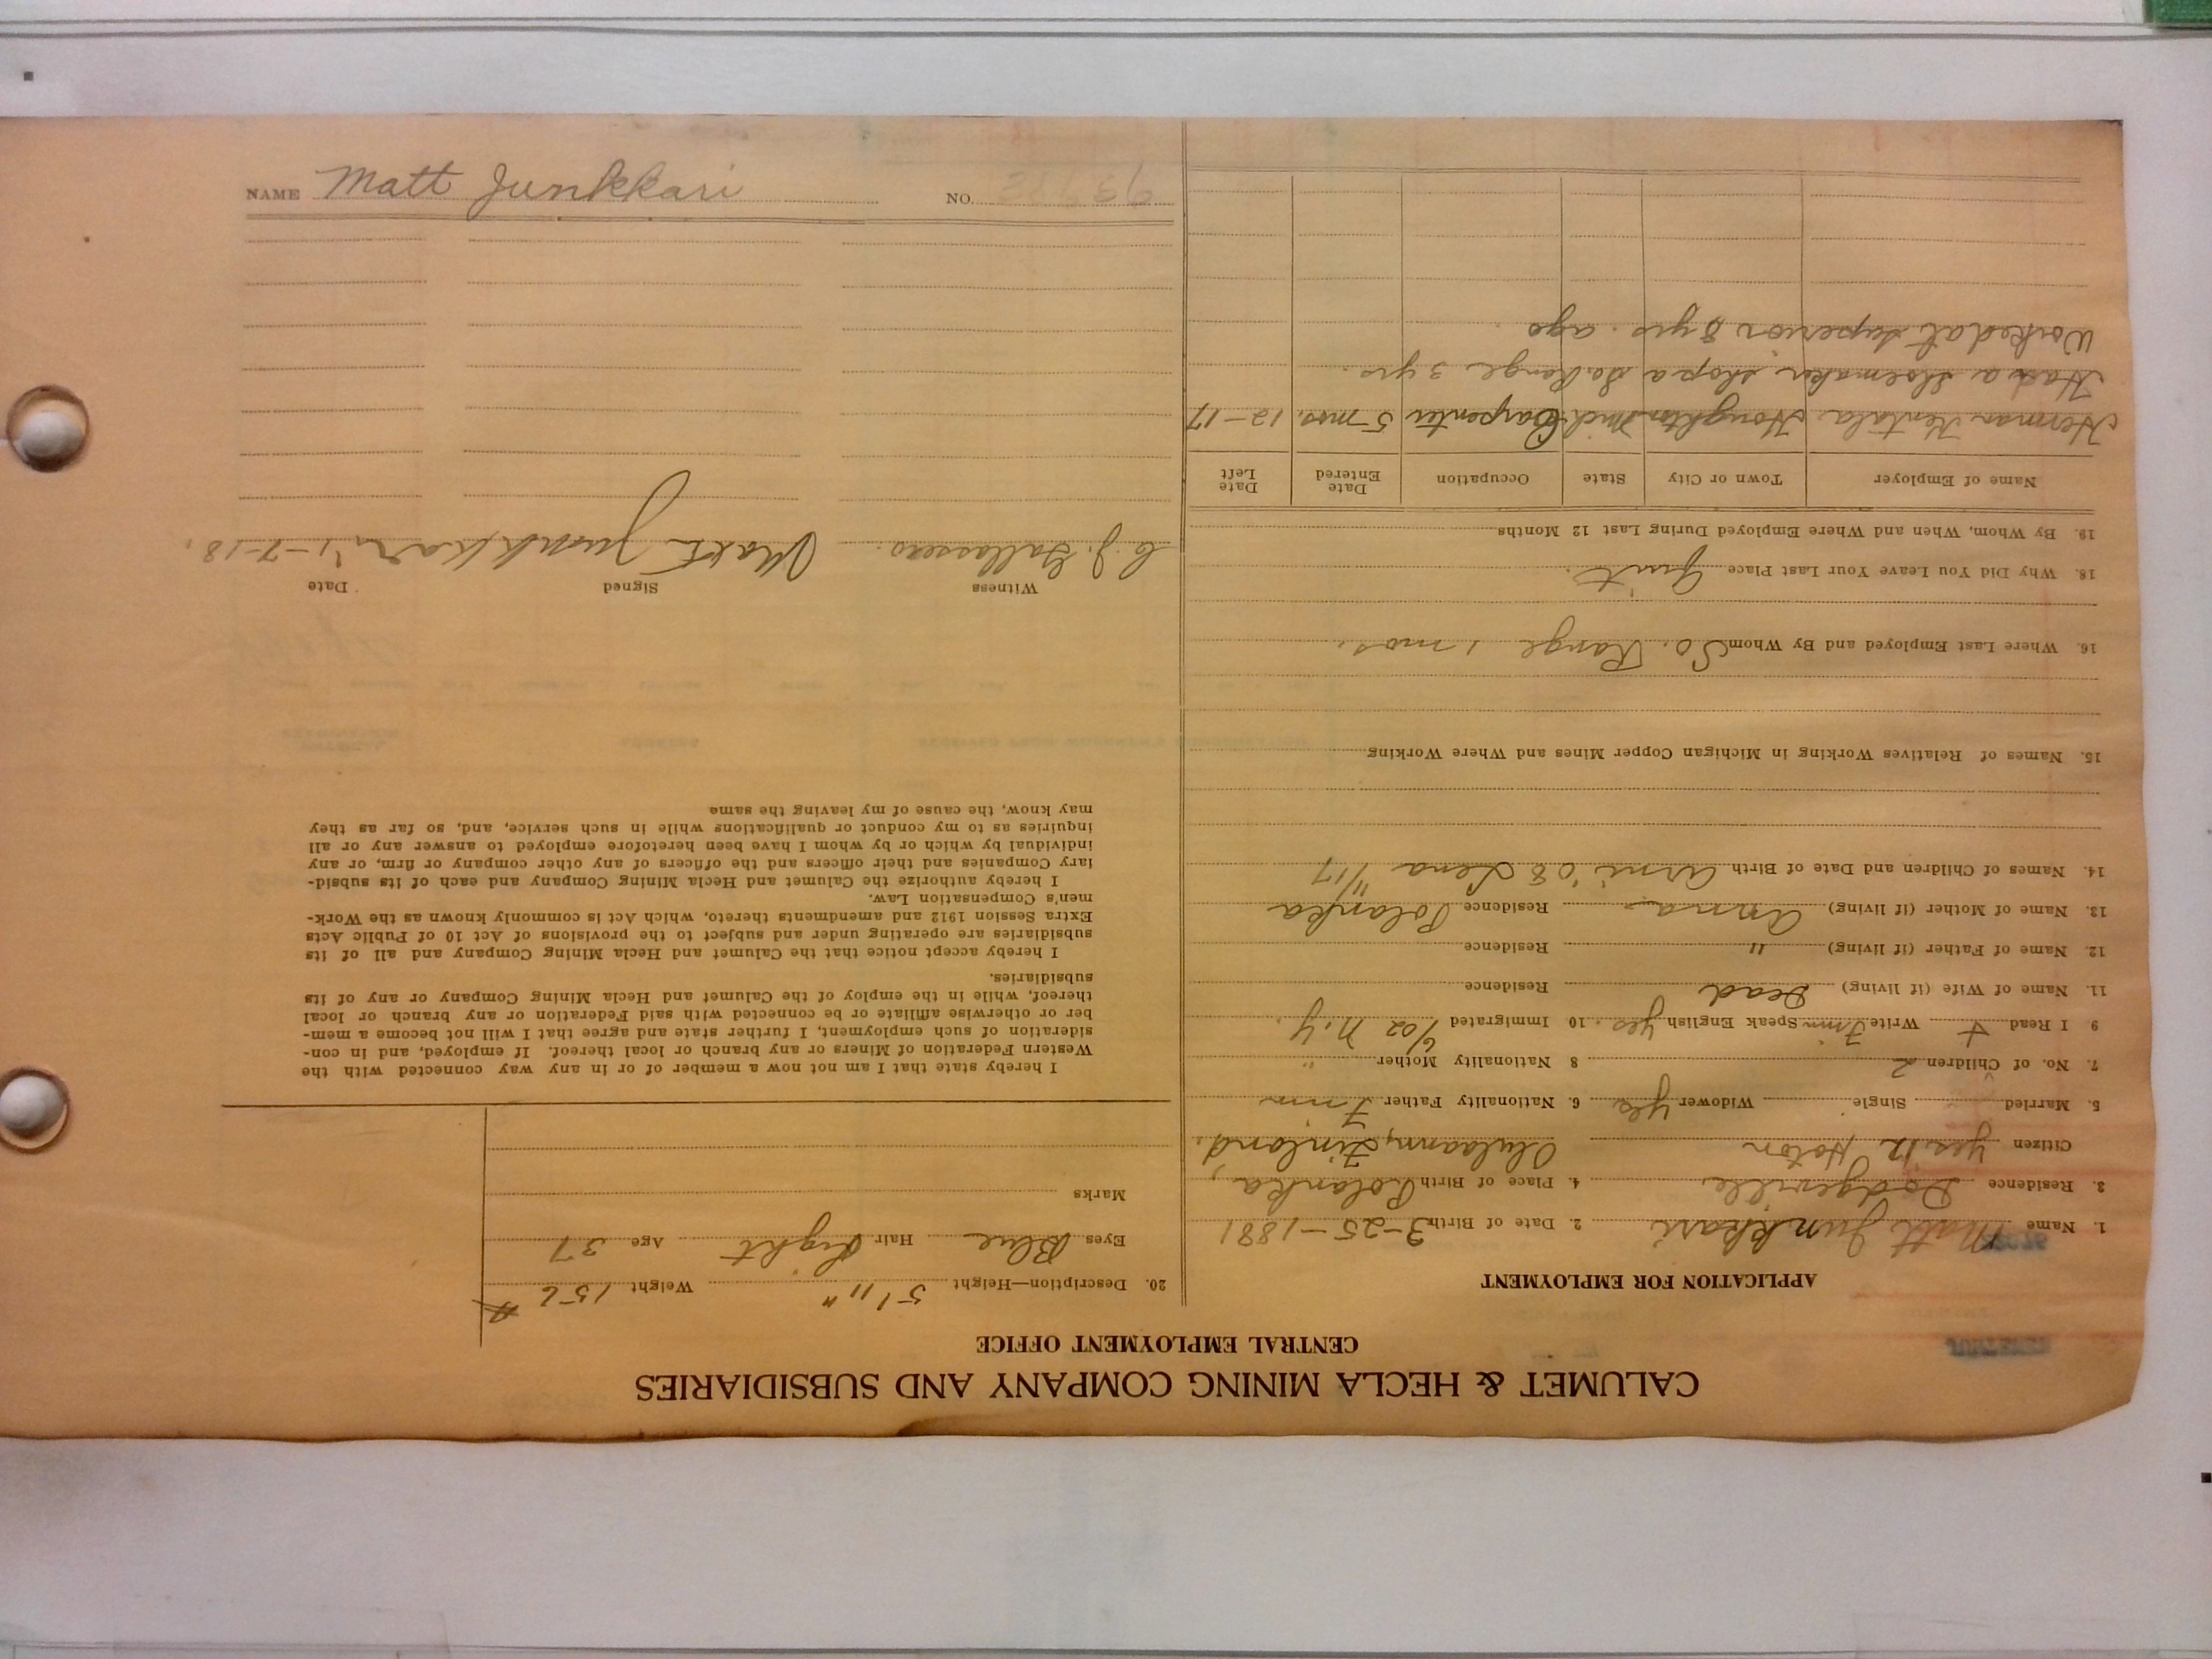 CALUMET & HECLA MINING COMPANY AND SUBSIDIARIES
CENTRAL EMPLOYMENT OFFICE
APPLICATION FOR EMPLOYMENT
1. Name Matt Junkkari 2. Date of Birth 3-25-1881
3. Residence Dodgeville 4. Place of Birth Polanka,
Citizen yes. 12 Hoton Oulaann, Finland.
5. Married Single Widower yes 6. Nationality Father Finn
7. No. of Children 2 8 Nationality Mother "
9 I Read + Write Finn Speak English yes. 10 Immigrated 6/02 N.Y.
11. Name of Wife (if living) Dead Residence
12. Name of Father (if living) " Residence
13. Name of Mother (if living) Anna Residence Polanka
14. Names of Children and Date of Birth Arni '08 Lena 11/17
15. Names of Relatives Working in Michigan Copper Mines and Where Working
16. Where Last Employed and By Whom So. Range 1 mos.
18. Why Did You Leave Your Last Place Quit.
19. By Whom, When and Where Employed During Last 12 Months
Name of Employer Town or City State Occupation Date Entered Date Left
Herman Kentala Houghton Mich Carpenter 5 mos. 12-17
Had a shoemaker shop a So. Range 3 yrs.
Worked at Superior 8 yrs. ago
20. Description—Height 5' 11" Weight 156 #
Eyes Blue Hair Light Age 37
Marks
I hereby state that I am not now a member of or in any way connected with the
Western Federation of Miners or any branch or local thereof. If employed, and in con-
sideration of such employment, I further state and agree that I will not become a mem-
ber or otherwise affiliate or be connected with said Federation or any branch or local
thereof, while in the employ of the Calumet and Hecla Mining Company or any of its
subsidiaries.
I hereby accept notice that the Calumet and Hecla Mining Company and all of its
subsidiaries are operating under and subject to the provisions of Act 10 of Public Acts
Extra Session 1912 and amendments thereto, which Act is commonly known as the Work-
men's Compensation Law.
I hereby authorize the Calumet and Hecla Mining Company and each of its subsid-
iary Companies and their officers and the officers of any other company or firm, or any
individual by which or by whom I have been heretofore employed to answer any or all
inquiries as to my conduct or qualifications while in such service, and, so far as they
may know, the cause of my leaving the same
Witness Signed Date
C. J. Matt Junkkari 1-7-18.
NAME Matt Junkkari NO.